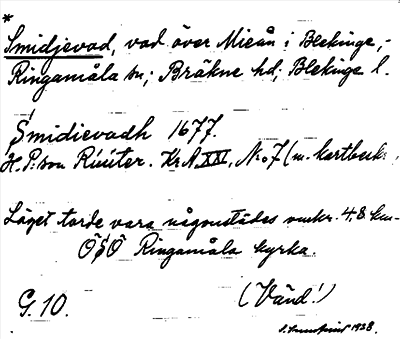 *
Smidjevad, vad över Mieån i Blekinge,-
Ringamåla sn; Bräkne hd, Blekinge l.
Smidievadh 1677.
H. P:son Ri Kr A XXI, No 7 (m. kartbeskr.
Läget torde vara någonstädes omkr. 4,8 km
ÖSÖ Ringamåla kyrka.
G. 10. (Vänd!)
1938.